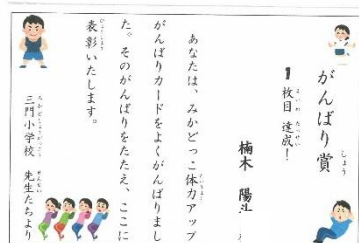 がんばり賞
しょう
1枚目 達成!
まいめ たっせい
楠木 陽
あなたは、みかどっこ体力アップ
がんばりカードをよくがんばりまし
た。そのがんばりをたたえ、ここに
表彰いたします。
三門小学校 先生たちより